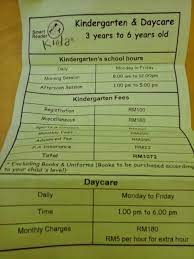 Smart Reader Kids
Kindergarten & Daycare
3 years to 6 years old
Kindergarten's school hours
Daily Monday to Friday
Morning Session 8.00 am to 12.00pm
Afternoon Session 1.00 pm to 5.00 pm
Kindergarten Fees
Registration RM100
Miscellaneous RM180
Insurance RM22
Total RM1072
* Excluding Books & Uniforms (Books to be purchased according to your child's level)
Daycare
Daily Monday to Friday
Time 1.00 pm to 6.00 pm
Monthly Charges RM180
RM5 per hour for extra hour